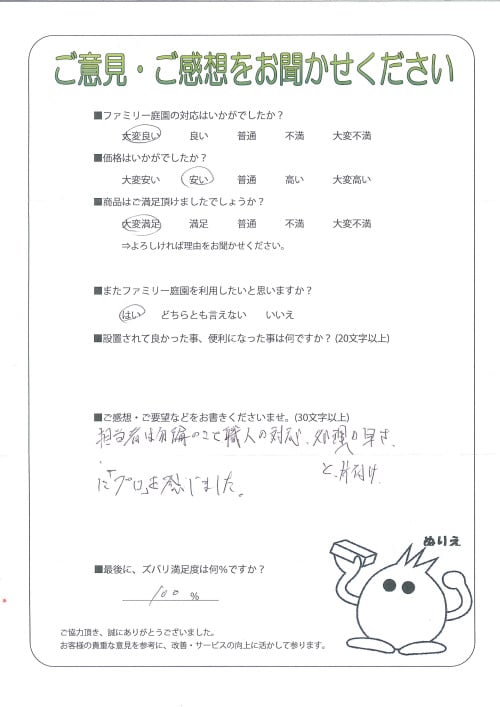 ご意見・ご感想をお聞かせください
■ファミリー庭園の対応はいかがでしたか？
大変良い 良い 普通 不満 大変不満
■価格はいかがでしたか？
大変安い 安い 普通 高い 大変高い
■商品はご満足頂けましたでしょうか？
大変満足 満足 普通 不満 大変不満
⇒よろしければ理由をお聞かせください。
■またファミリー庭園を利用したいと思いますか？
はい どちらとも言えない いいえ
■設置されて良かった事、便利になった事は何ですか？(20文字以上)
■ご感想・ご要望などをお書きくださいませ。(30文字以上)
担当者は勿論のこと職人の対応、処理の早さ、
と、片付け
に「プロ」を感じました。
ぬりえ
■最後に、ズバリ満足度は何％ですか？
100 %
ご協力頂き、誠にありがとうございました。
お客様の貴重な意見を参考に、改善・サービスの向上に活かして参ります。